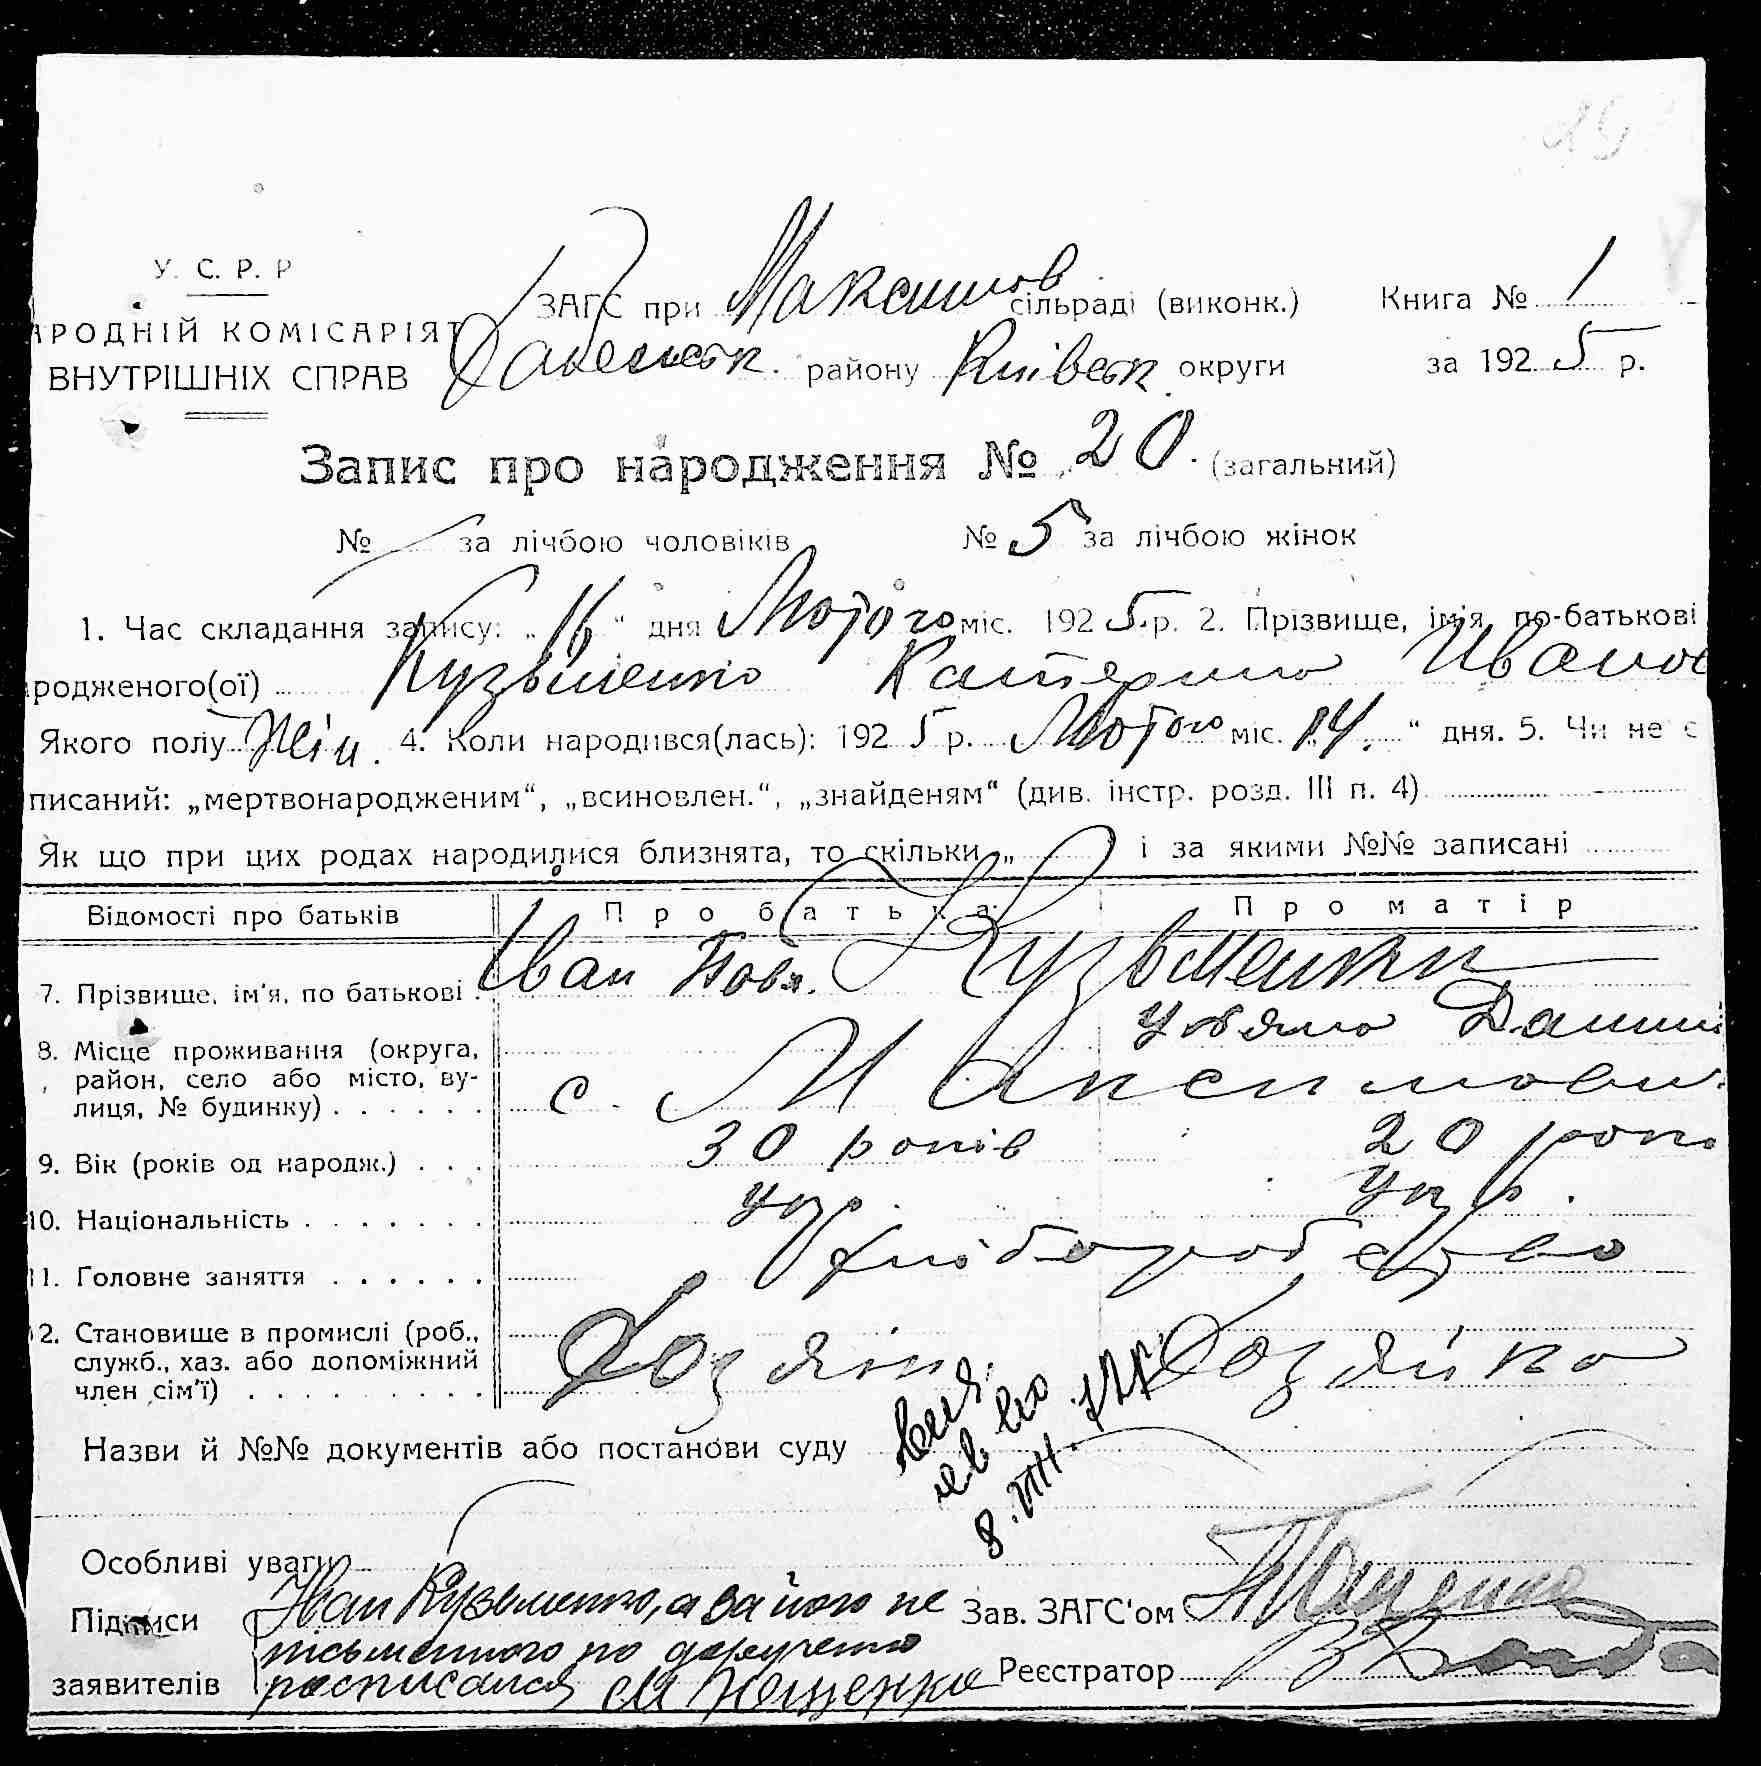 У. С. Р. Р
АРОДНІЙ КОМІСАРІЯТ
ВНУТРІШНІХ СПРАВ
ЗАГС при Максимов сільраді (виконк.) Книга № 1
району Київськ округи за 1925 р.
Запис про народження № 20. (загальний)
№ за лічбою чоловіків № 5 за лічбою жінок
1. Час складання запису: „16“ дня Лютого міс. 1925 р. 2. Прізвище, ім'я, по-батькові
родженого(ої) Кузьменко Катерина Иванов
Якого полу Жін. 4. Коли народився(лась): 1925 р. Лютого міс. „14.“ дня. 5. Чи не є
писаний: „мертвонародженим“, „всиновлен.“, „знайденям“ (див. інстр. розд. III п. 4)
Як що при цих родах народилися близнята, то скільки „ і за якими №№ записані
Відомості про батьків Про батька Про матір
7. Прізвище, ім'я, по батькові Іван Кузьменки
8. Місце проживання (округа, район, село або місто, вулиця, № будинку) с. Максимови
9. Вік (років од народж.) 30 років 20 рокі
10. Національність укр. укр.
11. Головне заняття хліборобство
12. Становище в промислі (роб., служб., хаз. або допоміжний член сім'ї) Хозяін Хозяйка
Назви й №№ документів або постанови суду
Особливі уваги
Підписи заявителів Іван Кузьменко, а за його не
письменного по доручению
росписался М Ющенко
Зав. ЗАГС'ом
Реєстратор